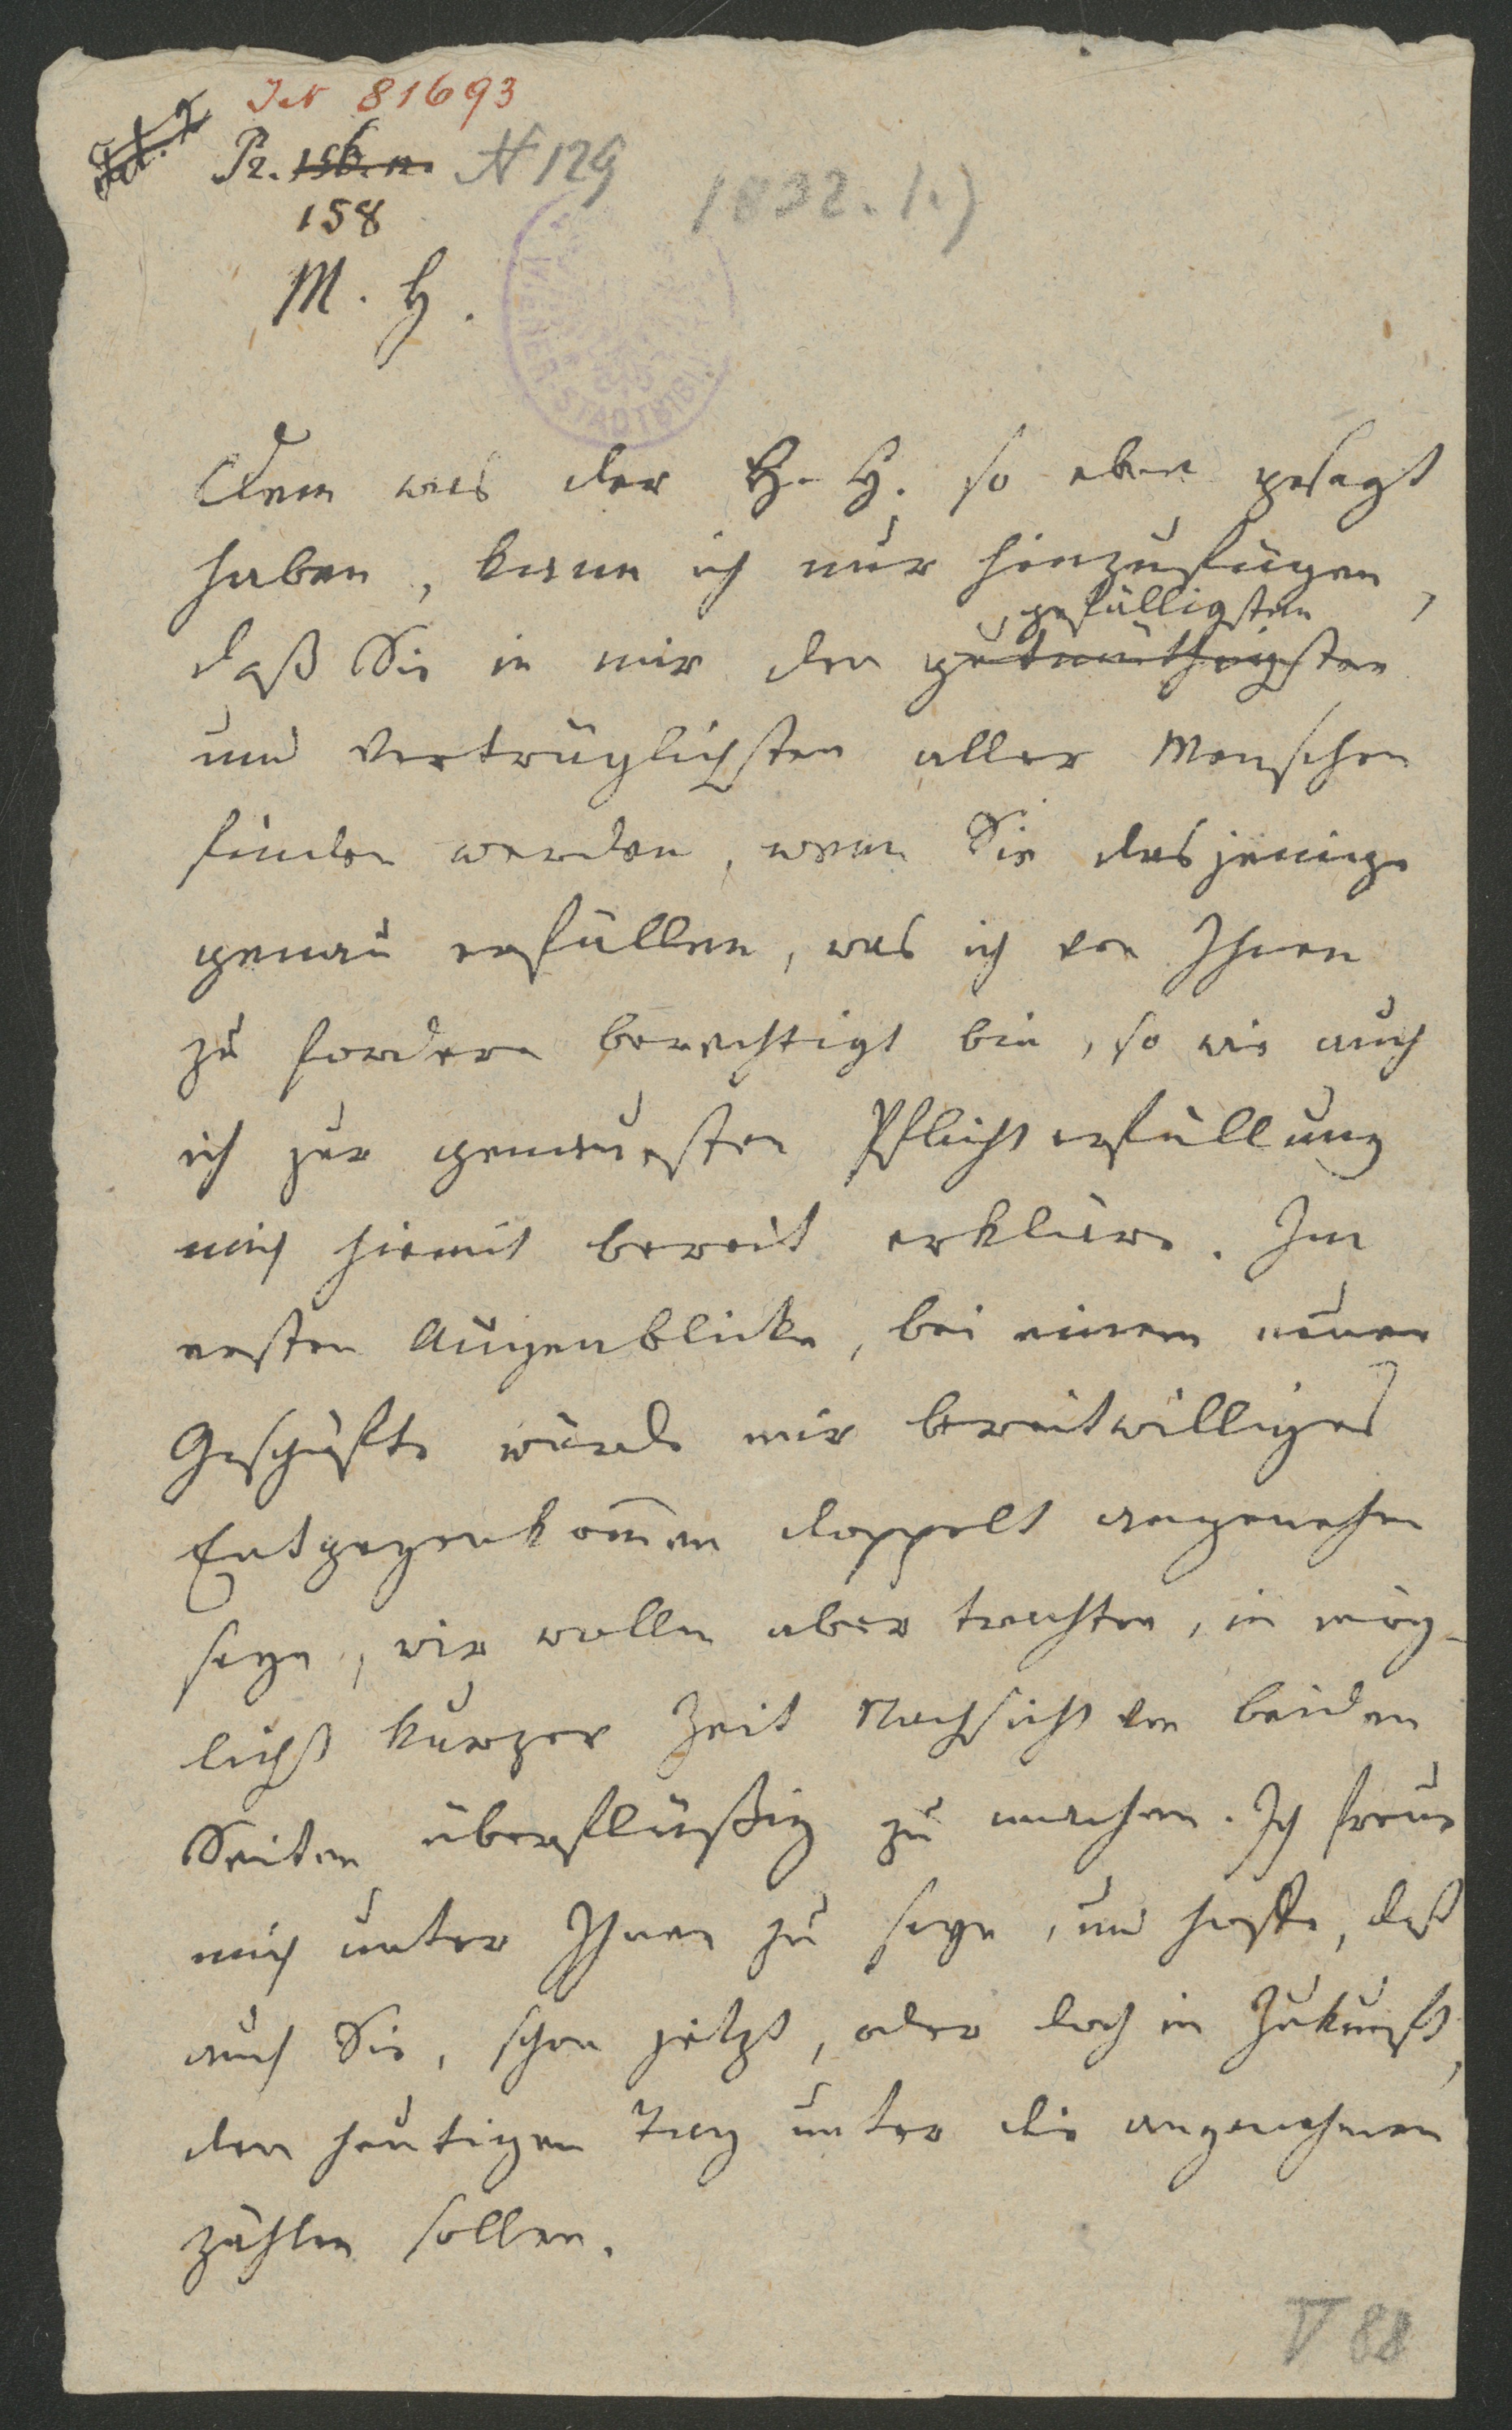 IN 81693
Pr. 156. n. N 129
158
1832. 1.)
M. H.
STADTBIBL
Dem was der H. H. so eben gesagt
haben, kann ich nur hinzufügen,
gefälligsten
daß Sie in mir den gutmüthigsten
und verträglichsten aller Menschen
finden werden, wenn Sie dasjenige
genau erfüllen, was ich von Ihnen
zu fordern berechtigt bin, so wie auch
ich zur genauesten Pflichterfüllung
mich hiemit bereit erkläre. Im
ersten Augenblicke, bei einem neuen
Geschäfte würde mir bereitwilliges
Entgegenkom̄en doppelt angenehm
seyn, wir wollen aber trachten, in mög-
lichst kurzer Zeit Nachsicht von beiden
Seiten überflüßig zu machen. Ich freue
mich unter Ihnen zu seyn, und hoffe, daß
auch Sie, schon jetzt, oder doch in Zukunft,
den heutigen Tag unter die angenehmen
zählen sollen.
V 88